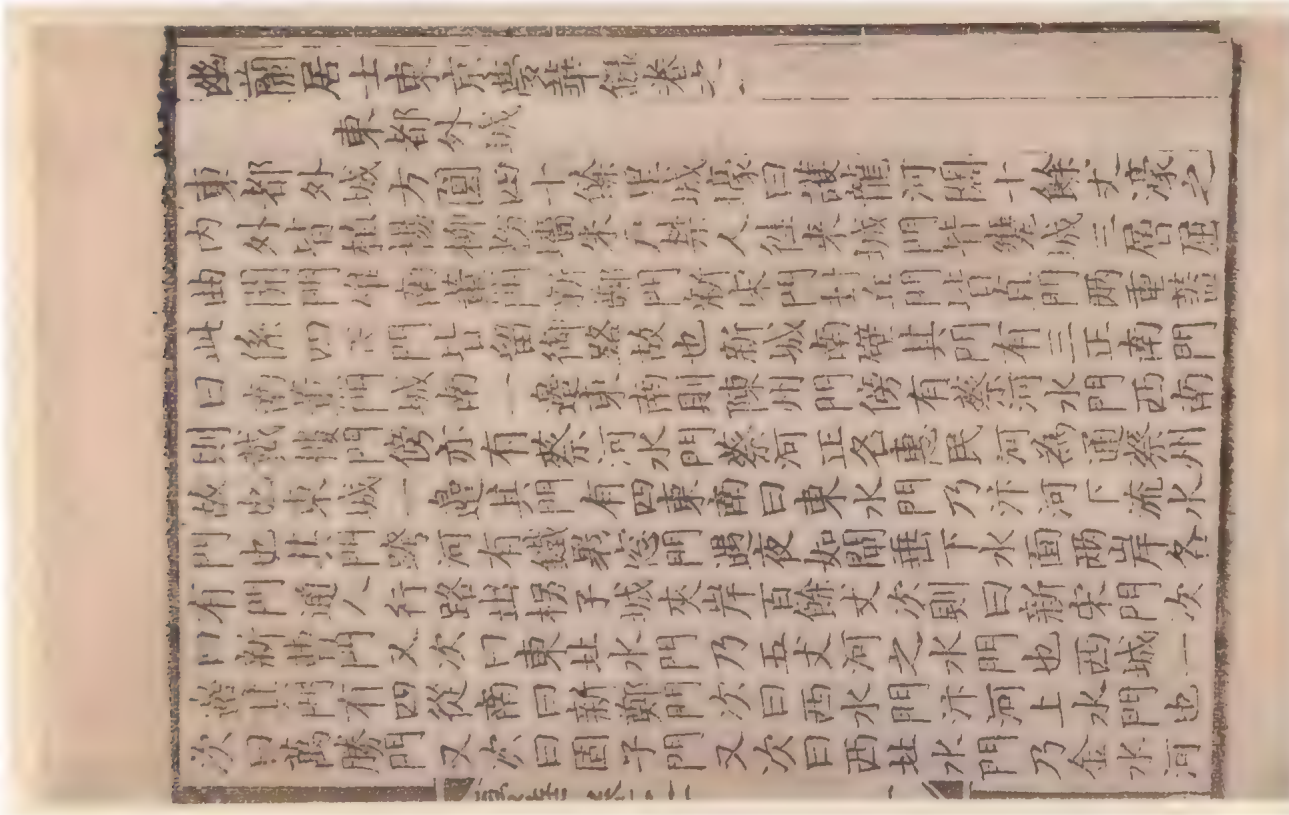 幽蘭居士東京夢華錄卷之一
東都外城
東都外城方圓四十餘里城壕曰護龍河闊十餘丈濠之
內外皆植楊柳粉牆朱戶禁人往來城門皆甕城三層屈
曲開門唯南薰門新鄭門新宋門封丘門皆直門兩重蓋
此係四正門皆留御路故也新城南壁其門有三正南門
曰南薰門城南一邊東南則陳州門傍有蔡河水門西南
則戴樓門傍亦有蔡河水門蔡河正名惠民河為通蔡州
故也東城一邊其門有四東南曰東水門乃汴河下流水
門也其門跨河有鐵裹窗門遇夜如閘垂下水面兩岸各
有門通人行路出拐子城夾岸百餘丈次則曰新宋門次
曰新曹門又次曰東北水門乃五丈河之水門也西城一
邊其門有四從南曰新鄭門次曰西水門汴河上水門也
次曰萬勝門又次曰固子門又次曰西北水門乃金水河